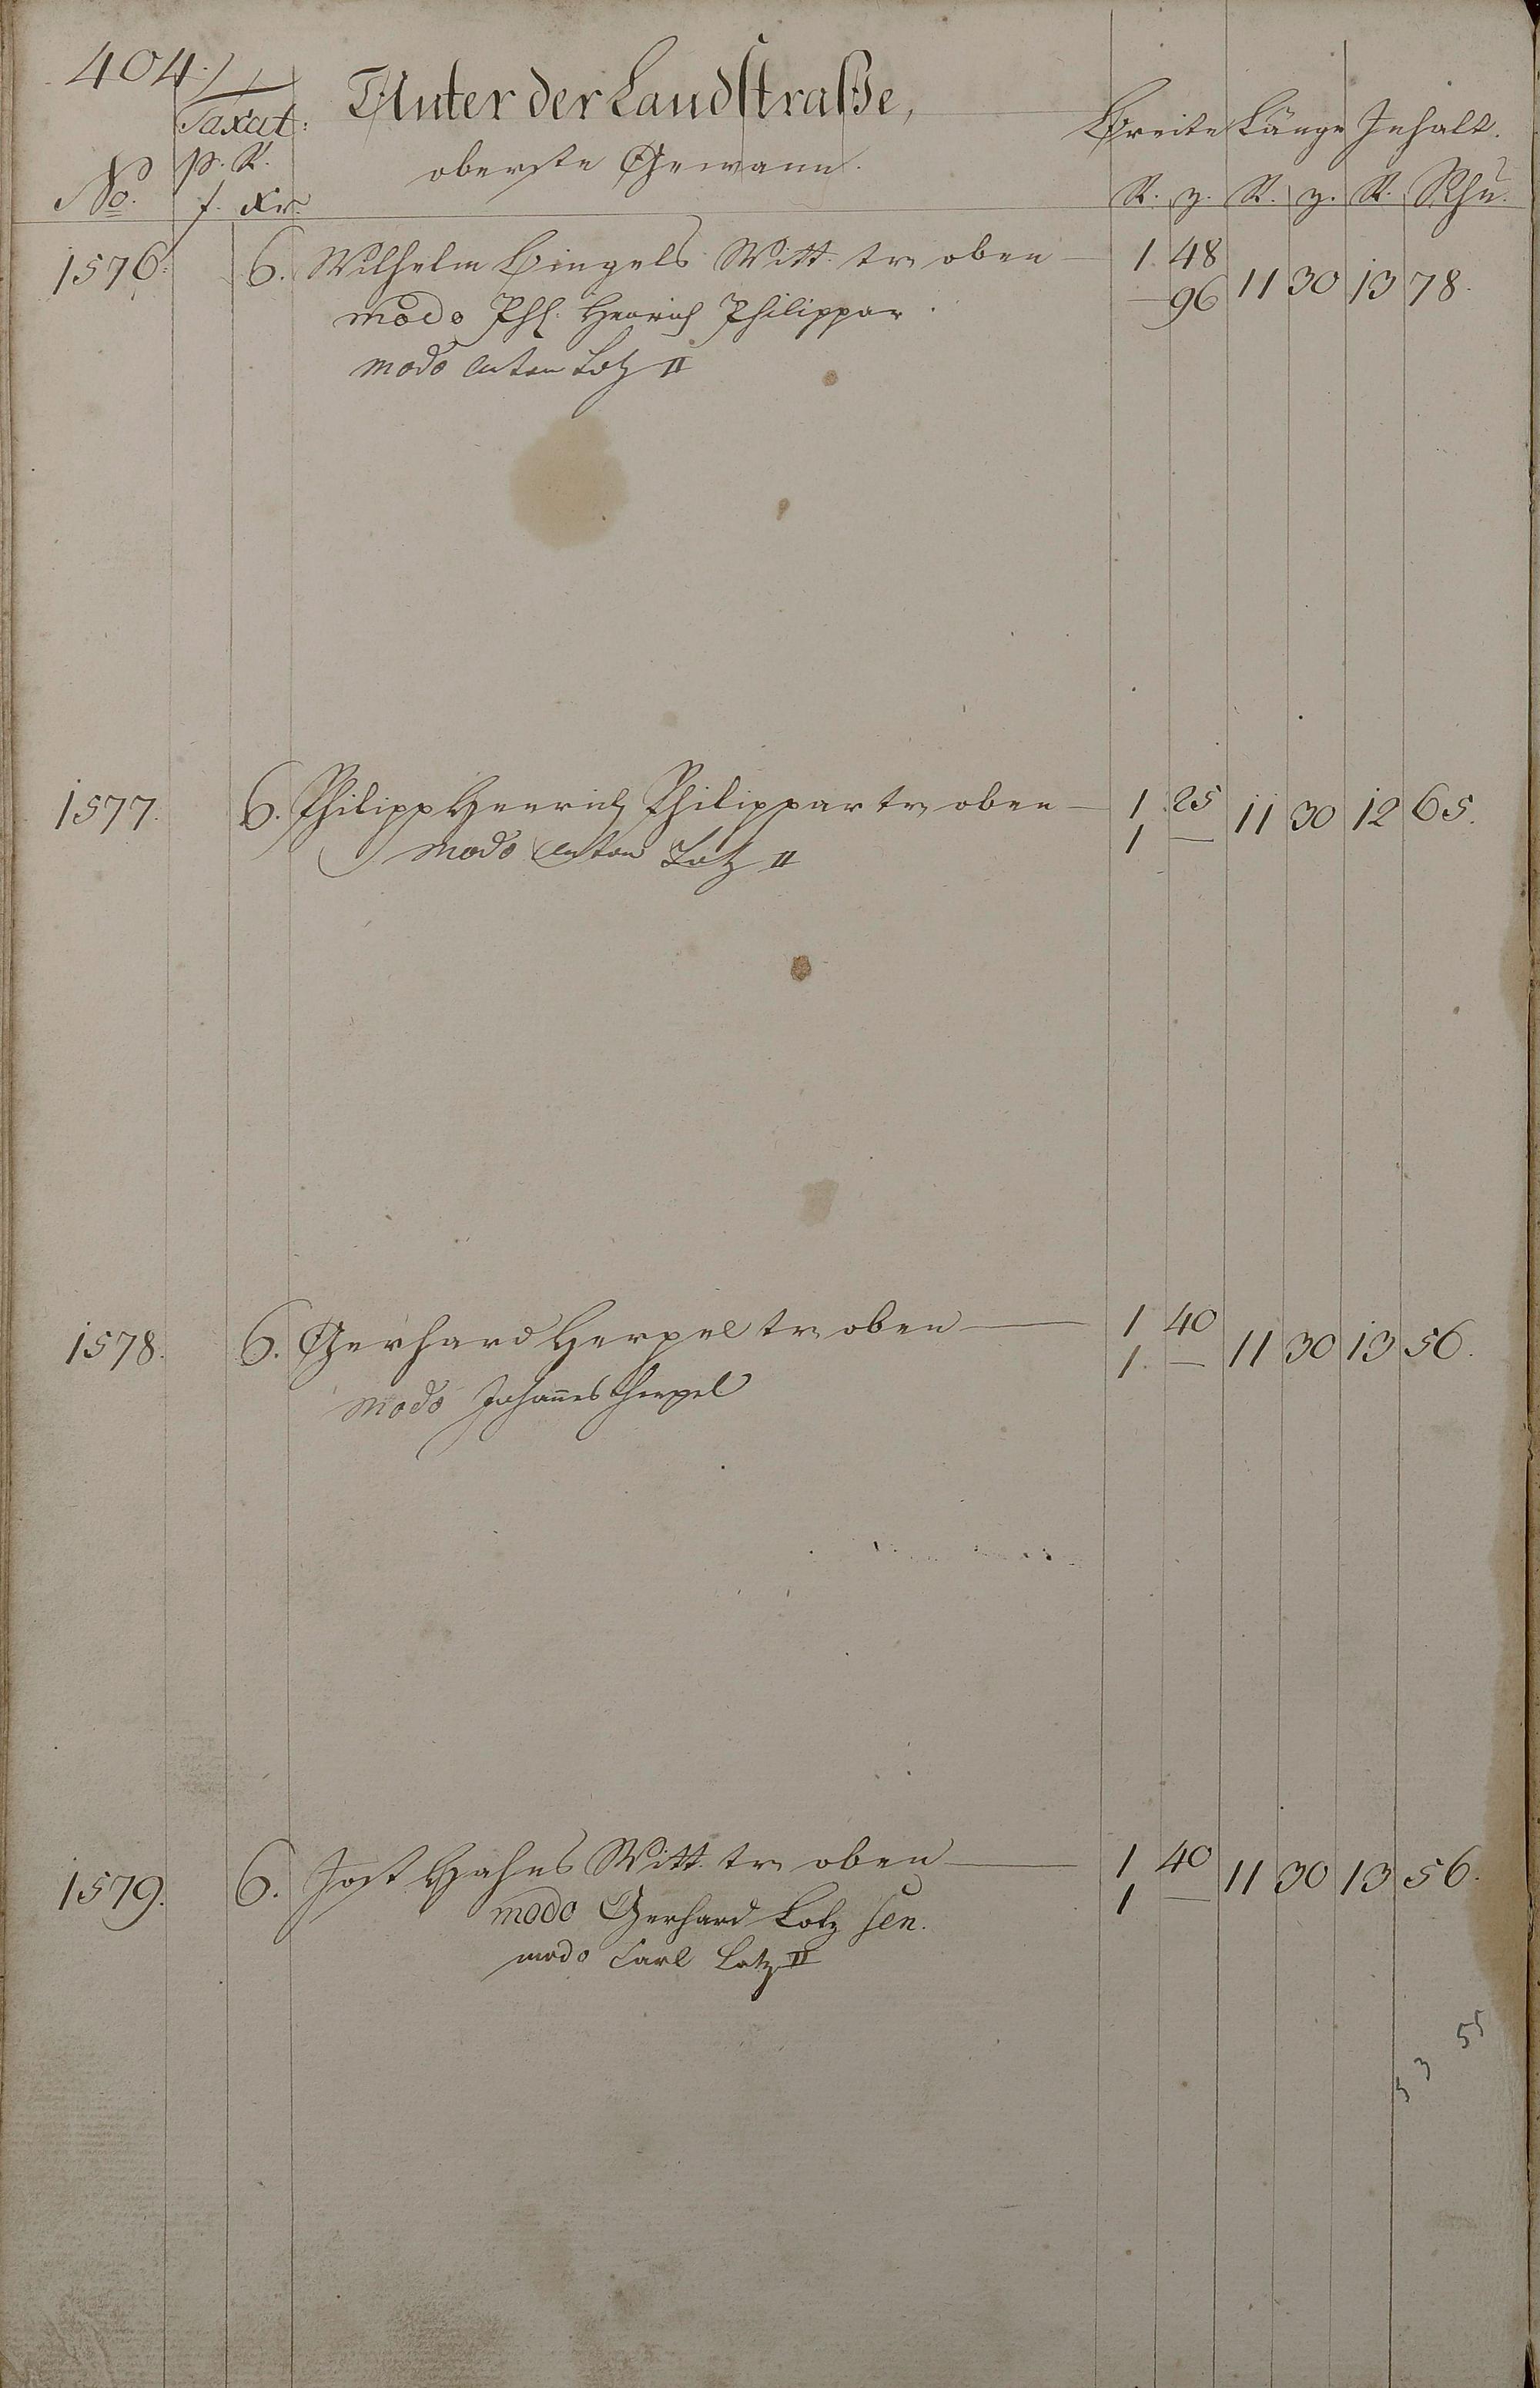 404.
Unter der Landstraße,
oberste Gewann.
Taxat:
p. R.
No. f. Xr.
Breite Länge Inhalt.
R. z. R. z. R. Schu.
1576. 6. Wilhelm Bingels Witt. tr. oben — 1 48 11 30 13 78.
modo Phl. Henrich Philippar. — 96
modo Anton Lotz II
1577. 6. Philipp Henrich Philippar tr. oben — 1 25 11 30 12 65.
modo Anton Lotz II 1 —
1578. 6. Gerhard Herpel tr. oben — 1 40 11 30 13 56.
modo Johannes Herpel 1. —
1579. 6. Jost Hahns Witt. tr. oben — 1 40 11 30 13 56.
modo Gerhard Lotz sen. 1 —
modo Carl Lotz II
55
3